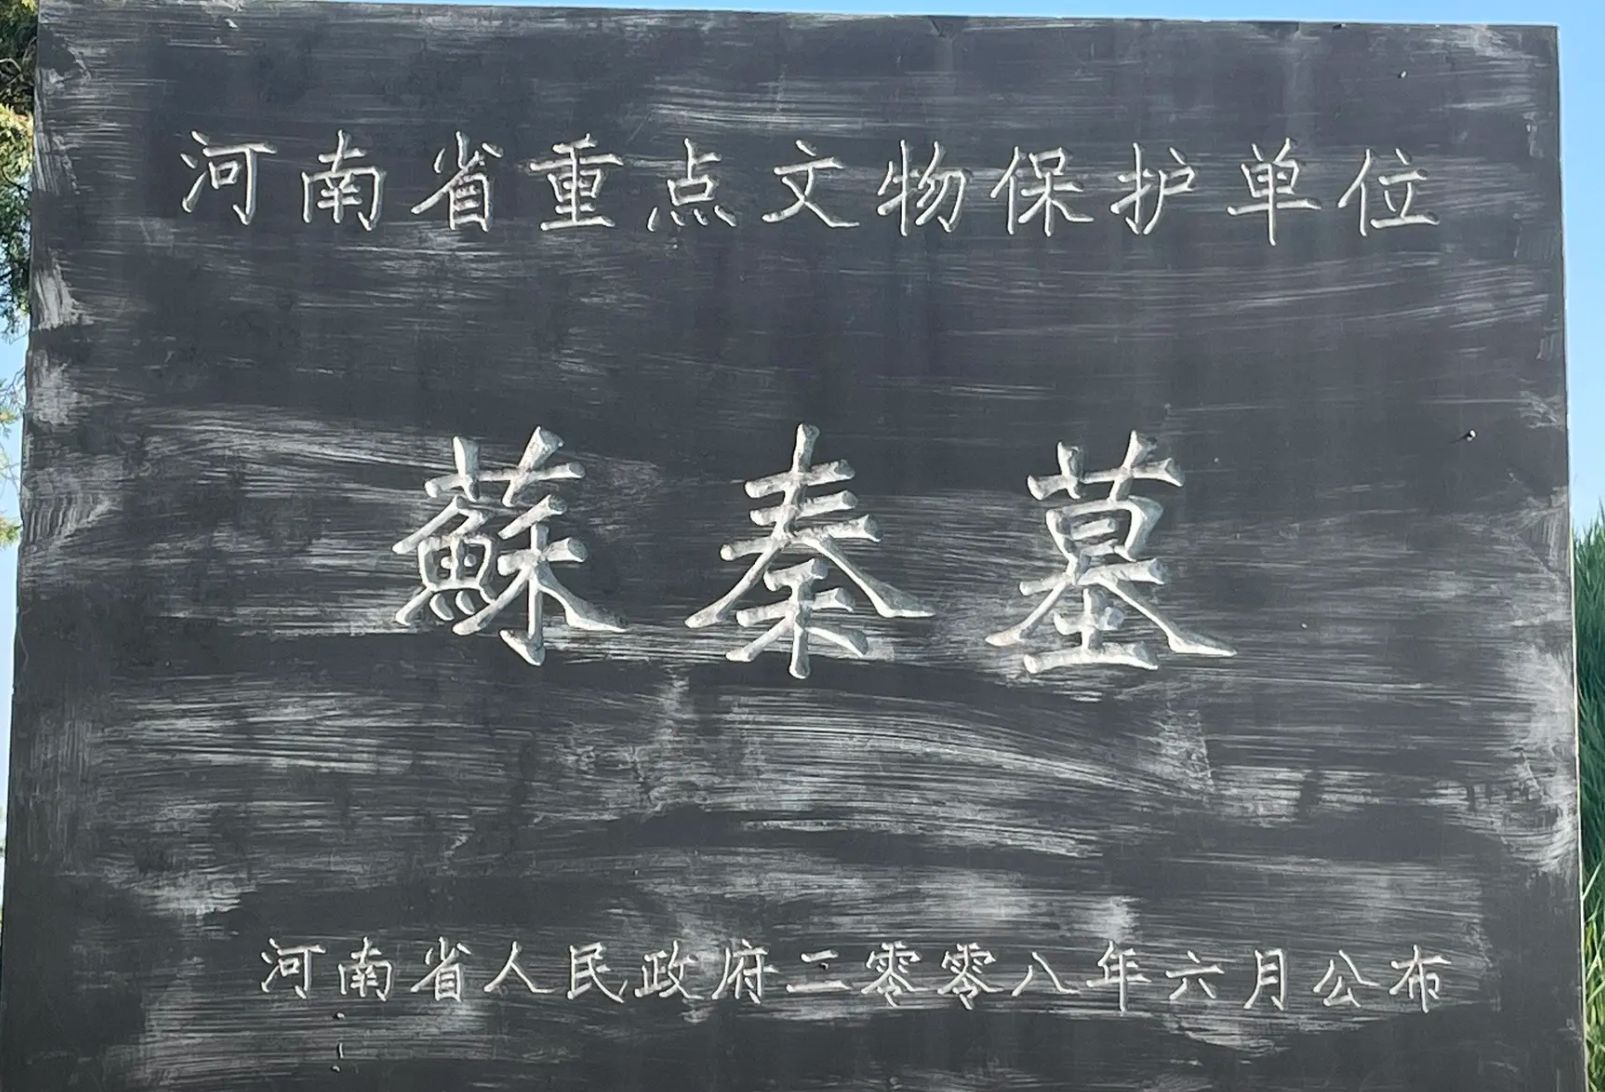 河南省重点文物保护单位
蘇秦墓
河南省人民政府二零零八年六月公布